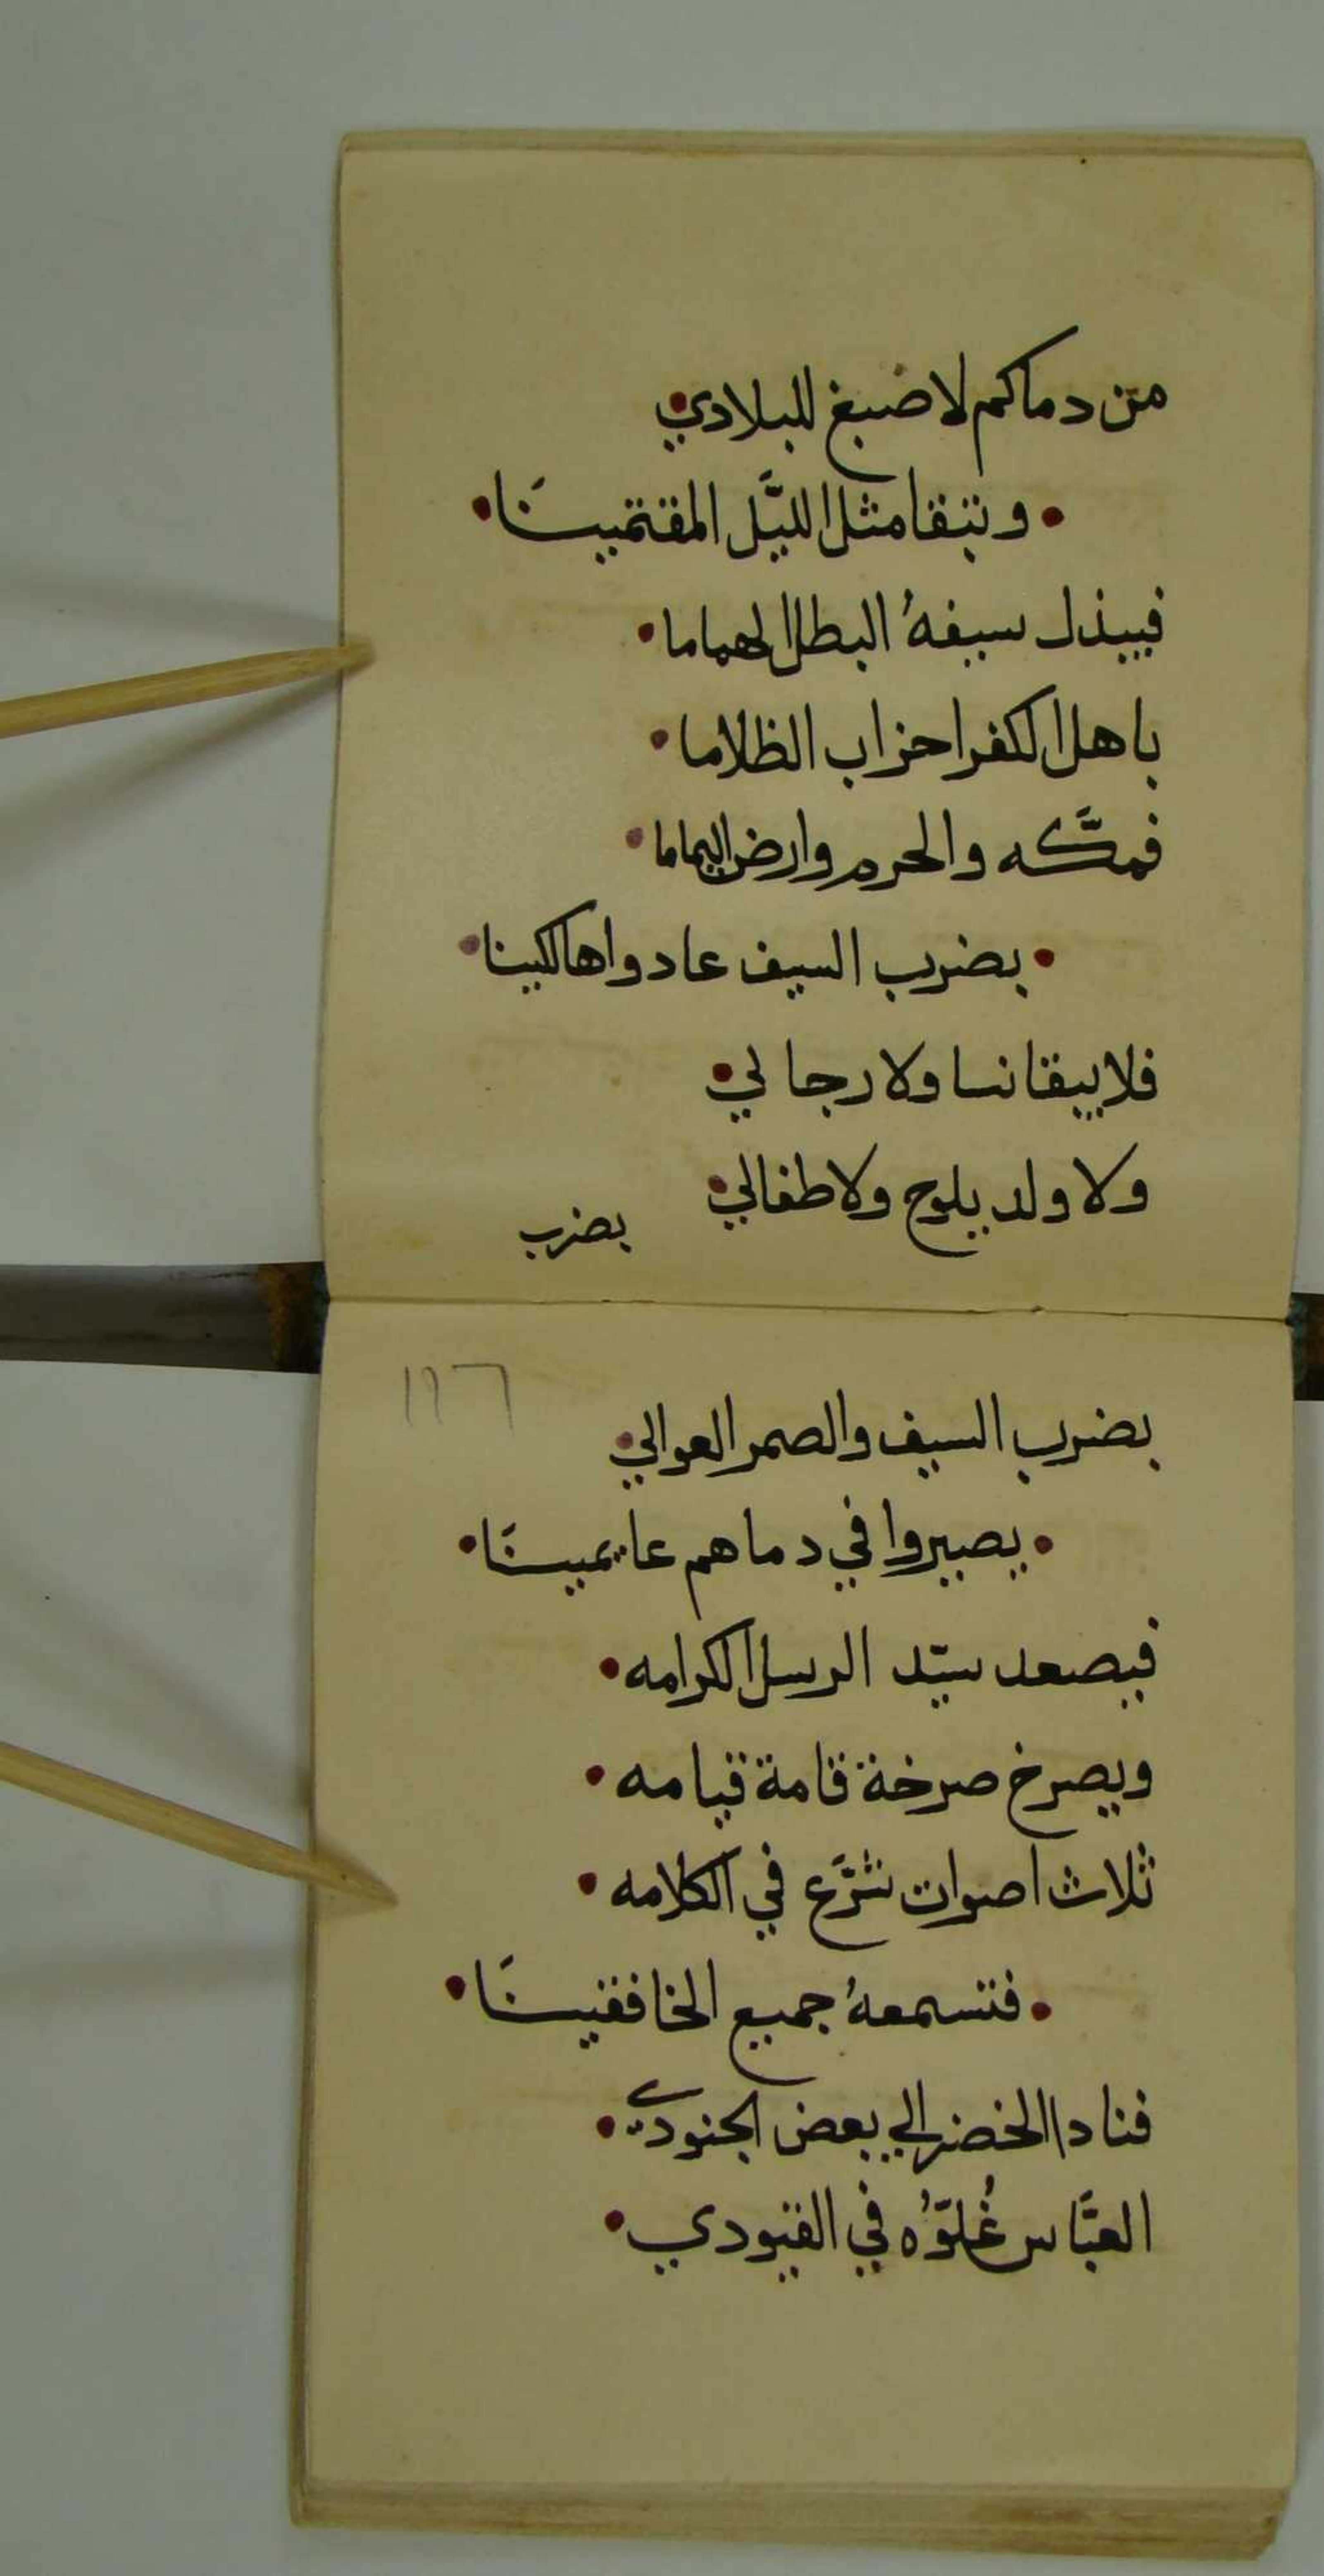 من دماكم لاضبغ للبلادي
• وتبقا مثل الليَّل المقتمينَا •
فيبذل سيفهُ البطل الهماما •
باهل الكفر احزاب الظلاما •
فمكَّه والحرم وارض اليماما •
• بضرب السيف عادوا هالكينا •
فلا يبقا نسا ولا رجالي •
ولا ولد يلوح ولا طفالي •
بضرب
١٩٦
بضرب السيف والصمر العوالي •
• يصيروا في دماهم عايمينَا •
فيصعد سيّد الرسل الكرامه •
ويصرخ صرخة قامة قيامه •
ثلاث اصوات تشرَّع في الكلامه •
• فتسمعهُ جميع الخافقينَا •
فنادا الخضر الي بعض الجنودي •
العبَّاس غُلوّهُ في القيودي •